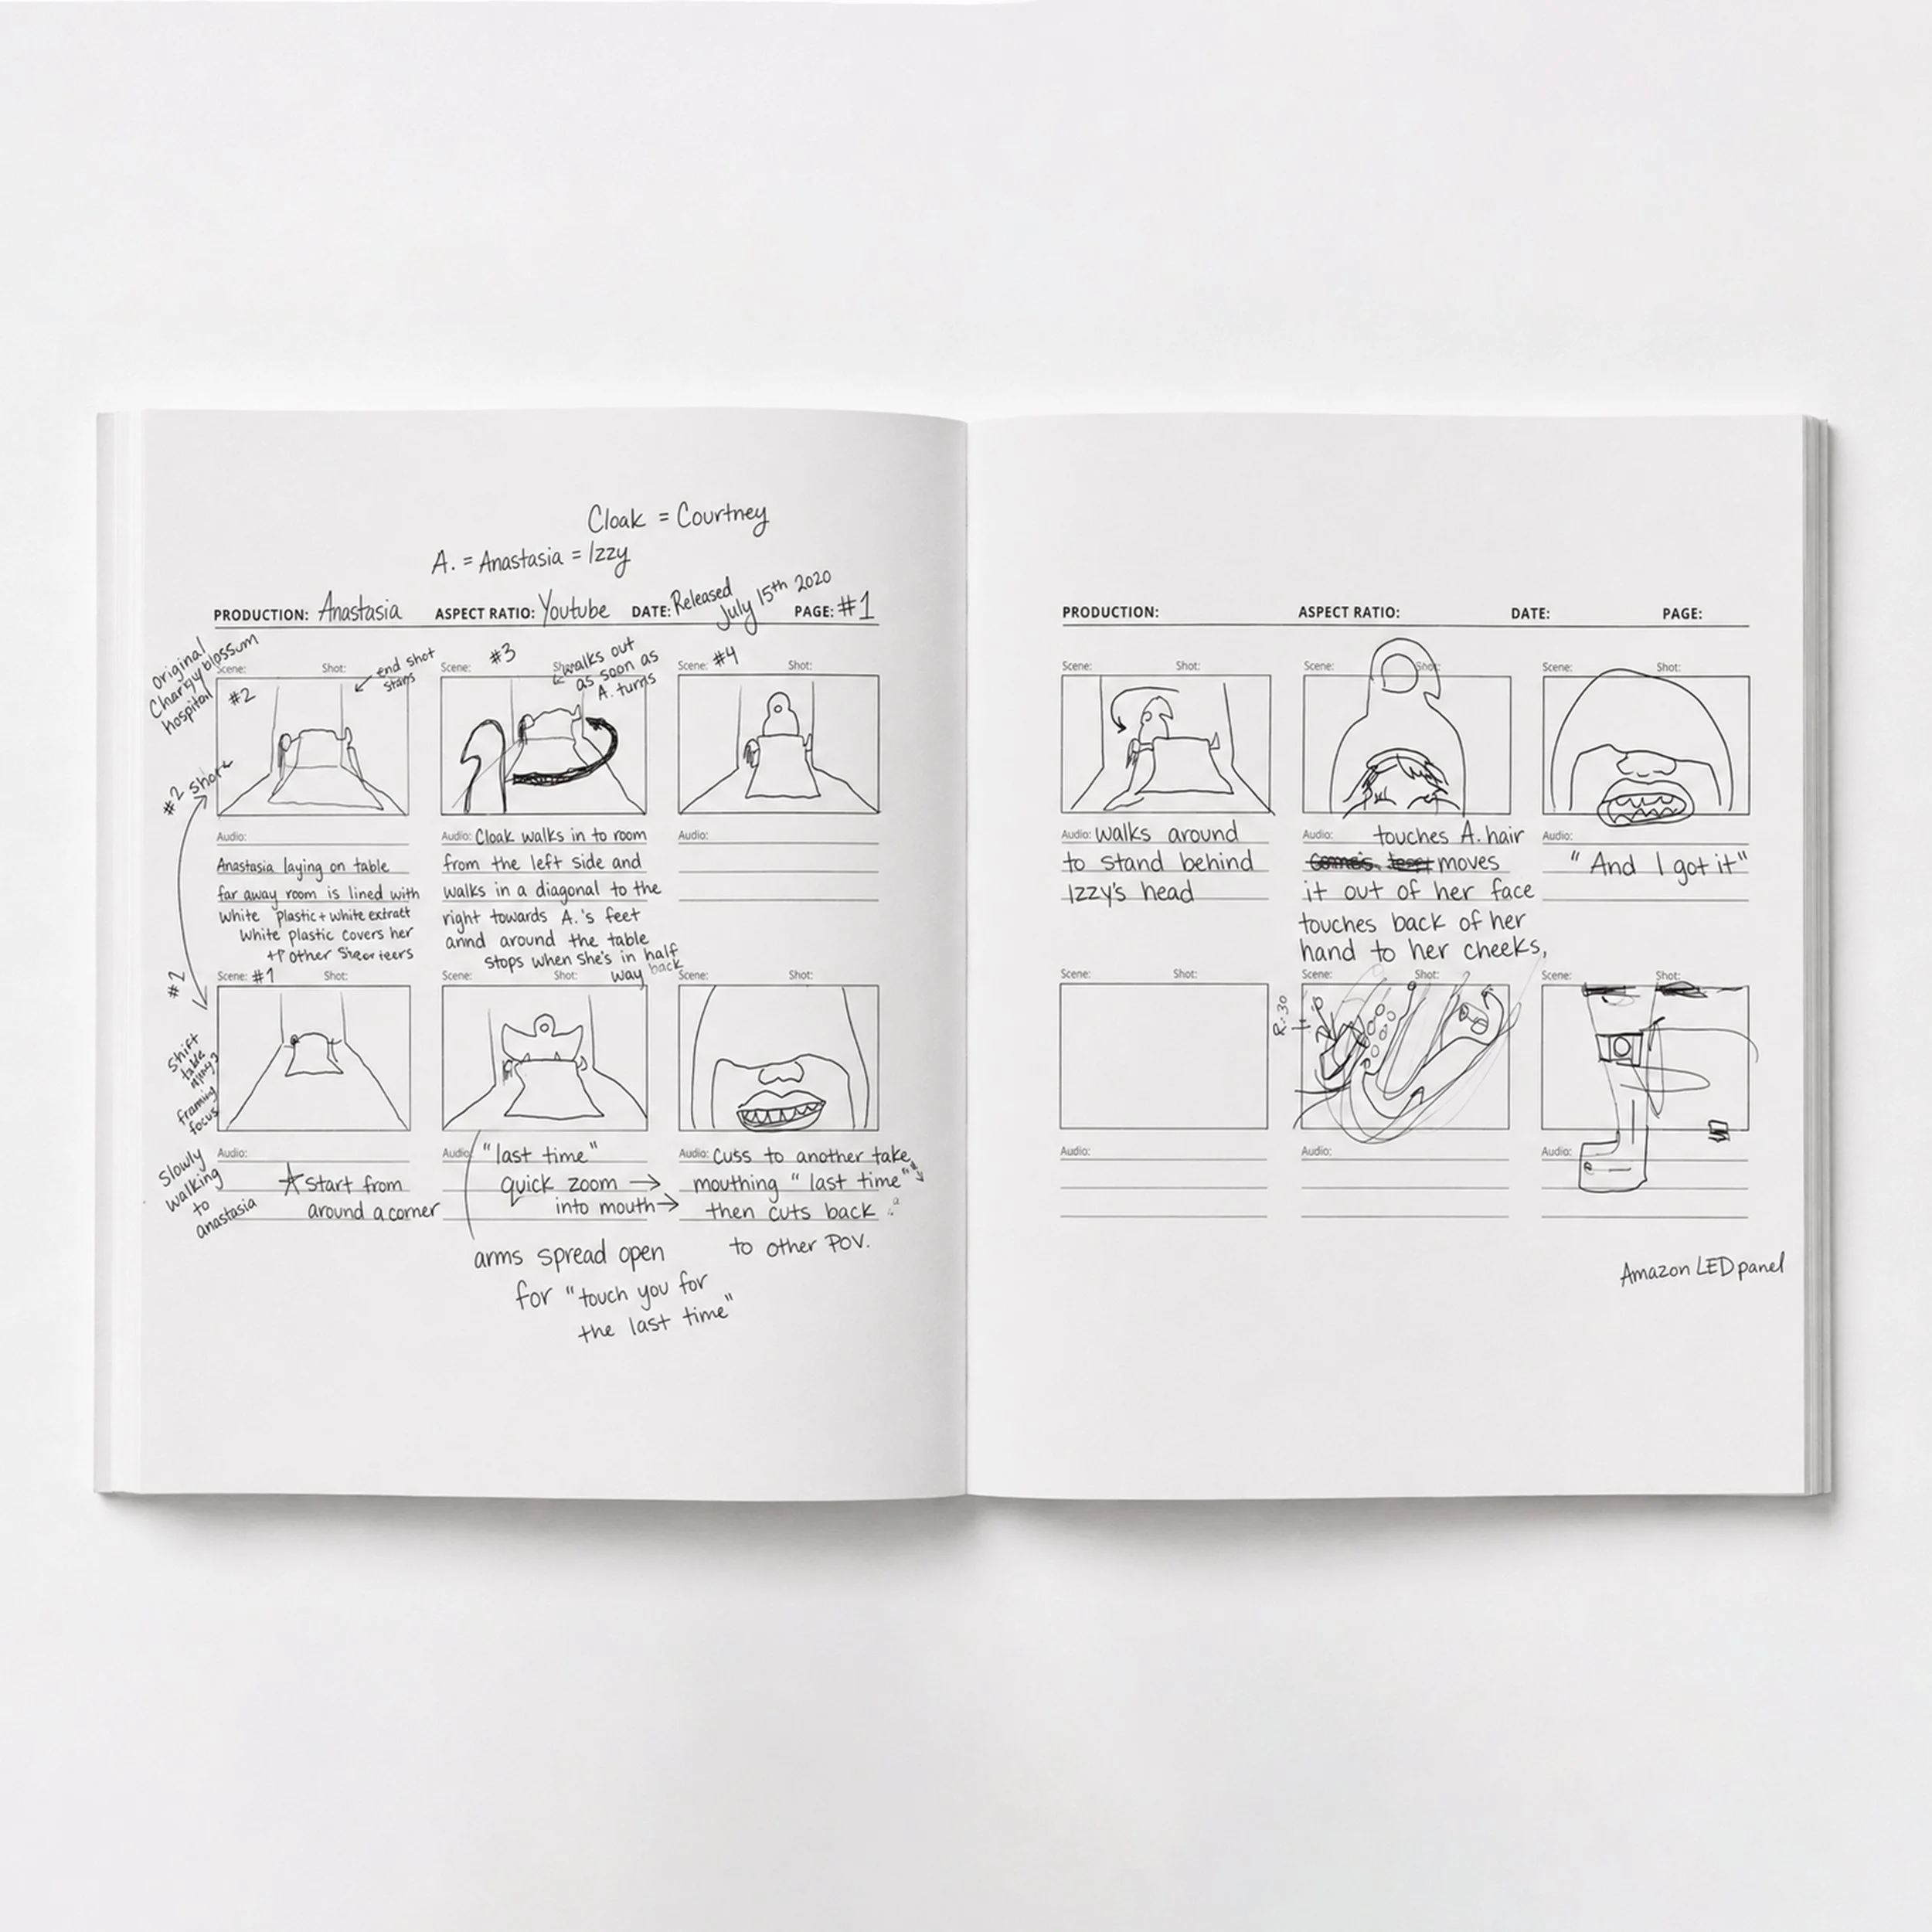 Cloak = Courtney
A. = Anastasia = Izzy
PRODUCTION: Anastasia ASPECT RATIO: Youtube DATE: Released July 15th 2020 PAGE: #1
Original
blossum
hospital
Scene: #2 Shot:
end shot
starts
#2 shot
Audio:
Anastasia laying on table
far away room is lined with
white plastic + white extract
white plastic covers her
other
Scene: #3
walks out
as soon as
A. turns
Audio: Cloak walks in to room
from the left side and
walks in a diagonal to the
right towards A.'s feet
annd around the table
stops when she's in half
way back
Scene: #4 Shot:
Audio:
#2
Shift
table
framing
focus
Slowly
walking
to
anastasia
Scene: #1 Shot:
Audio:
Start from
around a corner
Scene: Shot:
Audio: "last time"
quick zoom →
into mouth →
arms spread open
for "touch you for
the last time"
Scene: Shot:
Audio: cuss to another take
mouthing "last time"
then cuts back
to other POV.
PRODUCTION: ASPECT RATIO: DATE: PAGE:
Scene: Shot:
Audio: walks around
to stand behind
Izzy's head
Scene: Shot:
Audio: touches A. hair
moves
it out of her face
touches back of her
hand to her cheeks,
Scene: Shot:
Audio:
"And I got it"
Scene: Shot:
Audio:
Scene: Shot:
Audio:
Scene: Shot:
Audio:
Amazon LED panel